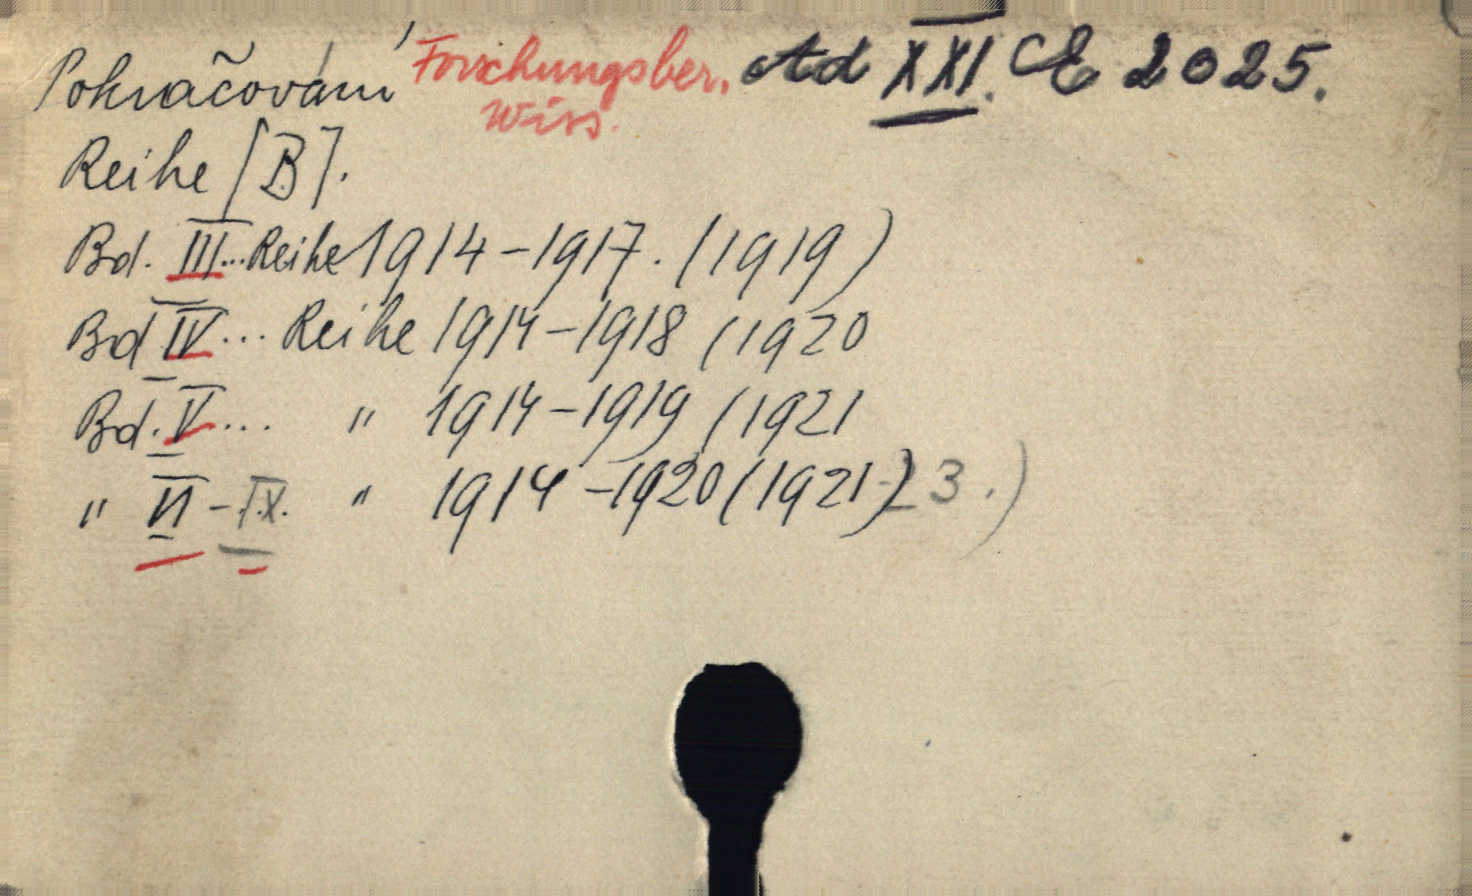 Pokračování Forschungsber. Ad XXI. E 2025.
Wiss.
Reihe [B].
Bd. III... Reihe 1914-1917. (1919)
Bd IV... Reihe 1914-1918 (1920
Bd. V... " 1914-1919 (1921
" VI - IX. " 1914-1920 (1921)-23.)